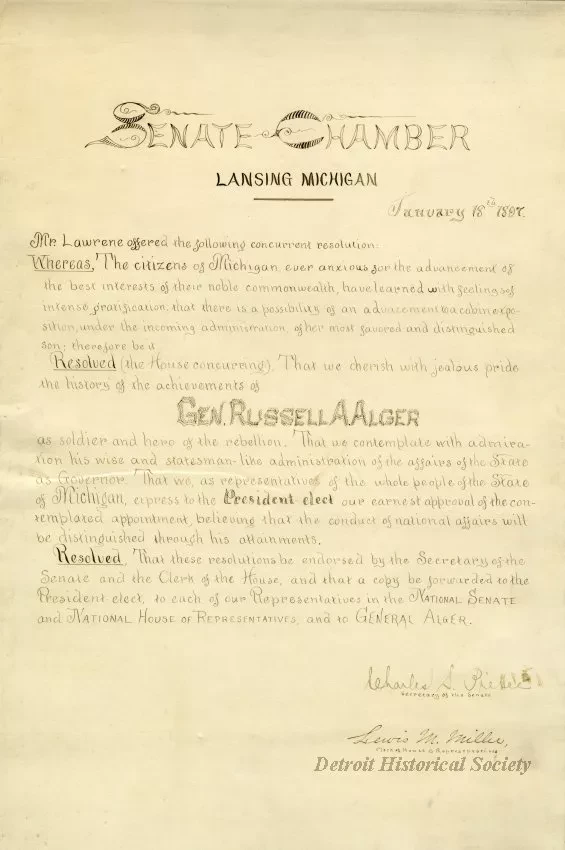 SENATE CHAMBER
LANSING MICHIGAN
January 18th 1897.
Mr. Lawrene offered the following concurrent resolution:
Whereas, The citizens of Michigan, ever anxious for the advancement of
the best interests of their noble commonwealth, have learned with feelings of
intense gratification, that there is a possibility of an advacement to a cabin e po-
sition, under the incoming administration, of her most favored and distinguished
son; therefore be it
Resolved (the House concurring), That we cherish with jealous pride
the history of the achievements of
GEN. RUSSELL A. ALGER
as soldier and hero of the rebellion. That we contemplate with admira-
tion his wise and statesman-like administration of the affairs of the State
as Governor. That we, as representatives of the whole people of the State
of Michigan, express to the President elect our earnest approval of the con-
templated appointment, believing that the conduct of national affairs will
be distinguished through his attainments.
Resolved, That these resolutions be endorsed by the Secretary of the
Senate and the Clerk of the House, and that a copy be forwarded to the
President elect, to each of our Representatives in the NATIONAL SENATE
and NATIONAL HOUSE OF REPRESENTATIVES, and to GENERAL ALGER.
Charles S.
Secretary of the Senate
Lewis M. Miller,
Clerk of House of Representatives
Detroit Historical Society